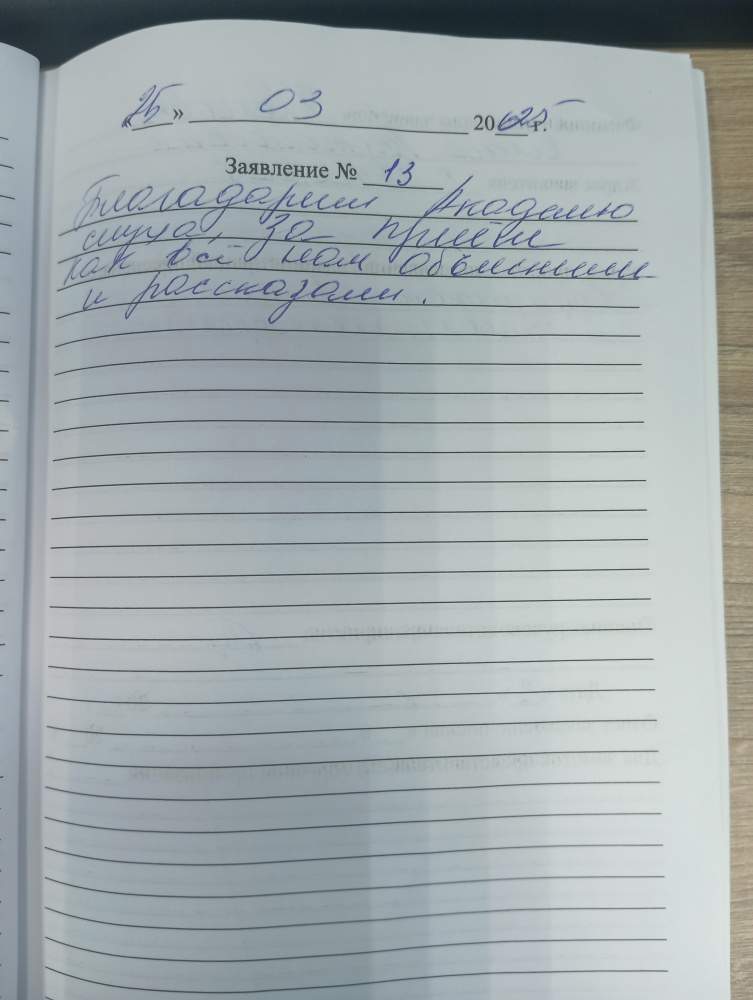 «25» 03 2025 г.
Заявление № 13
Благадарим Академию
слуха, за приём
как всё нам объяснили
и рассказали.